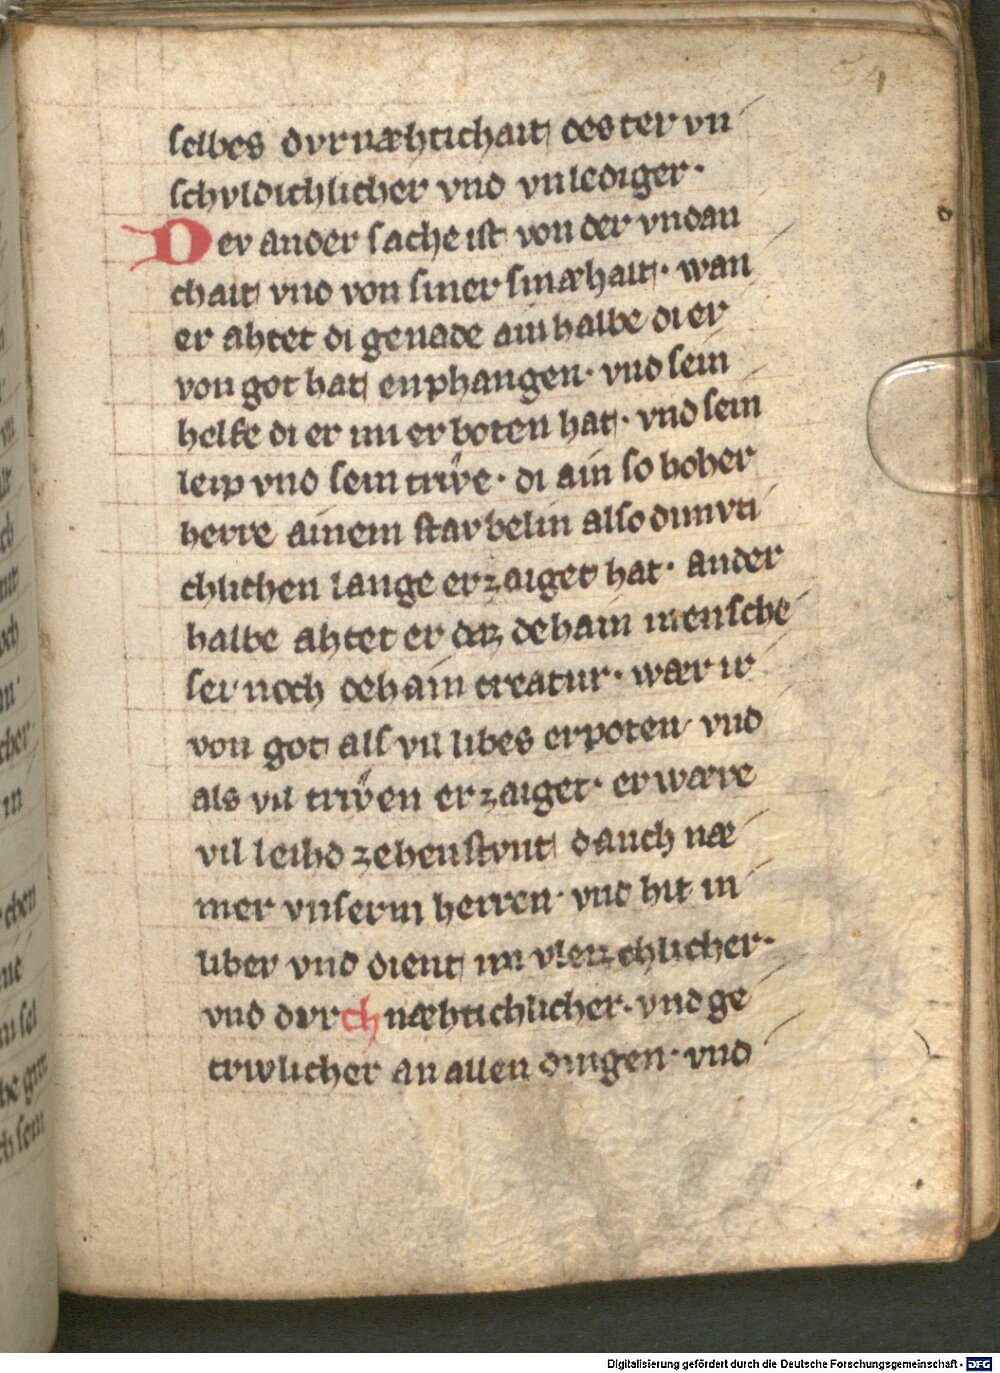 54
selbes dvrnæhtichait des ter vn
schvldichlicher vnd vnlediger·
Der ander sache ist von der vndan
chait vnd von siner smæhait· wan
er ahtet di genade ainhalbe di er
von got hat enphangen· vnd sein
helfe di er im erboten hat· vnd sein
leip vnd sein triwͤe· di ain so hoher
herre ainem stavbelin also
chlichen lange erzaiget hat· ander
halbe ahtet er daz dehain mensche
sei noch dehain creatur· wær ir
von got als vil libes erpoten vnd
als vil triwͤen erzaiget· er wære
vil leiht zehenstvnt danchnæ
mer vnserm herren· vnd hit in
liber vnd dient im vleizchlicher·
vnd dvrchnæhtichlicher· vnd ge
trwlicher an allen dingen· vnd
Digitalisierung gefördert durch die Deutsche Forschungsgemeinschaft - DFG